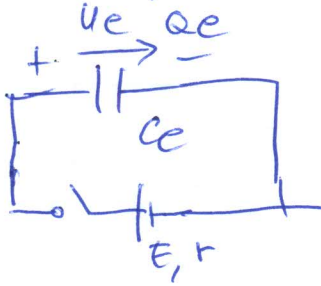 Ue Qe
+ -
Ce
E, r